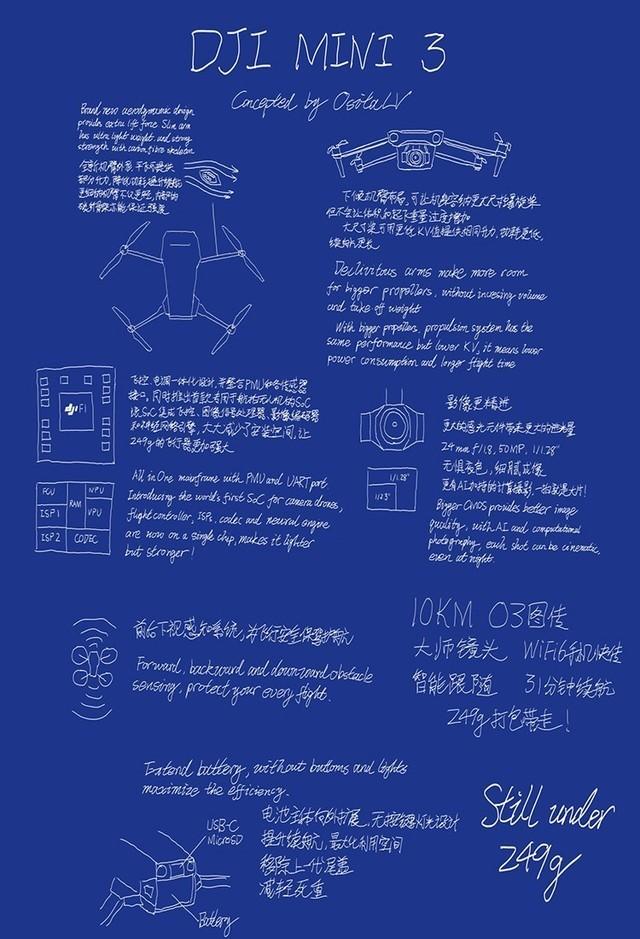 DJI MINI 3
Concepted by OsitaLV
Brand new aerodynamic design
provides extra life force Slim arm
has ultra light weight and strong
strength with carbon fibre skeleton
全新机臂外形,平飞可提供
部分升力,降低功耗,提升续航
下倾机臂布局,可让机身容纳更大尺寸螺旋桨
但不会让体积和起飞重量过度增加
大尺寸桨可用更低KV值提供相同升力,功耗更低,
续航更长
Declivitous arms make more room
for bigger propellers, without invesing volume
and take off weight
With bigger propellers, propulsion system has the
same performance but lower KV, it means lower
power consumption and longer flight time
dji FI
飞控、电调一体化设计,并整合PMU和各传感器
接口,同时推出首款专用于航拍无人机的SoC
该SoC集成飞控、图像信号处理器、影像编码器
和神经网络引擎,大大减小了安装空间,让
249g的飞行器更加强大
FCU
NPU
RAM
ISP1
VPU
ISP2
CODEC
All in One mainframe with PMU and UART port.
Introducing the world's first SoC for camera drones,
flight controller, ISPs, codec and neural engine
are now on a single chip, makes it lighter
but stronger!
1/1.28"
1/2.3"
影像更精进
更大的感光元件带来更大的进光量
24mm f/1.8, 50MP, 1/1.28"
无惧夜色,细腻成像
更有AI加持的计算摄影,一拍就是大片!
Bigger CMOS provides better image
quality, with AI and computational
photography, each shot can be cinematic,
even at night.
前后下视感知系统,为飞行安全保驾护航
Forward, backward and downward obstacle
sensing, protect your every flight.
10KM O3图传
大师镜头 WiFi6手机快传
智能跟随 31分钟续航
249g打包带走!
Extend battery, without buttons and lights
maximize the efficiency.
USB-C
MicroSD
Battery
电池主体向外扩展,无按键灯光设计
提升续航,最大化利用空间
移除上一代尾盖
减轻死重
Still under
249g